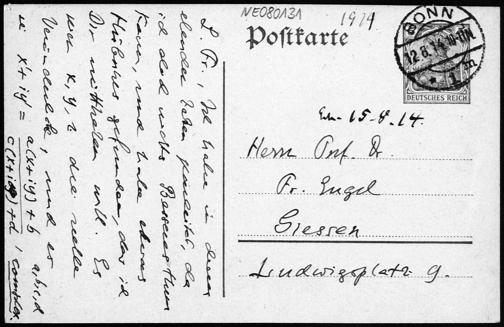 NE080131
1914
Postkarte
BONN
12.8.14.
* 1 m
DEUTSCHES REICH
15-8-14.
Herrn Prof. Dr.
Fr. Engel
Giessen
Ludwigsplatz 9.
L. Fr., Ich habe in diesen
elenden Zeiten gearbeitet, da
ich doch nichts Besseres thun
kann, und habe etwas
Hübsches gefunden, das ich
Dir mittheilen will. Es
x, y, z die reelle
Veränderliche, und es
x+iy = a(x+iy)+b / c(x+iy)+d , a,b,c,d complex.